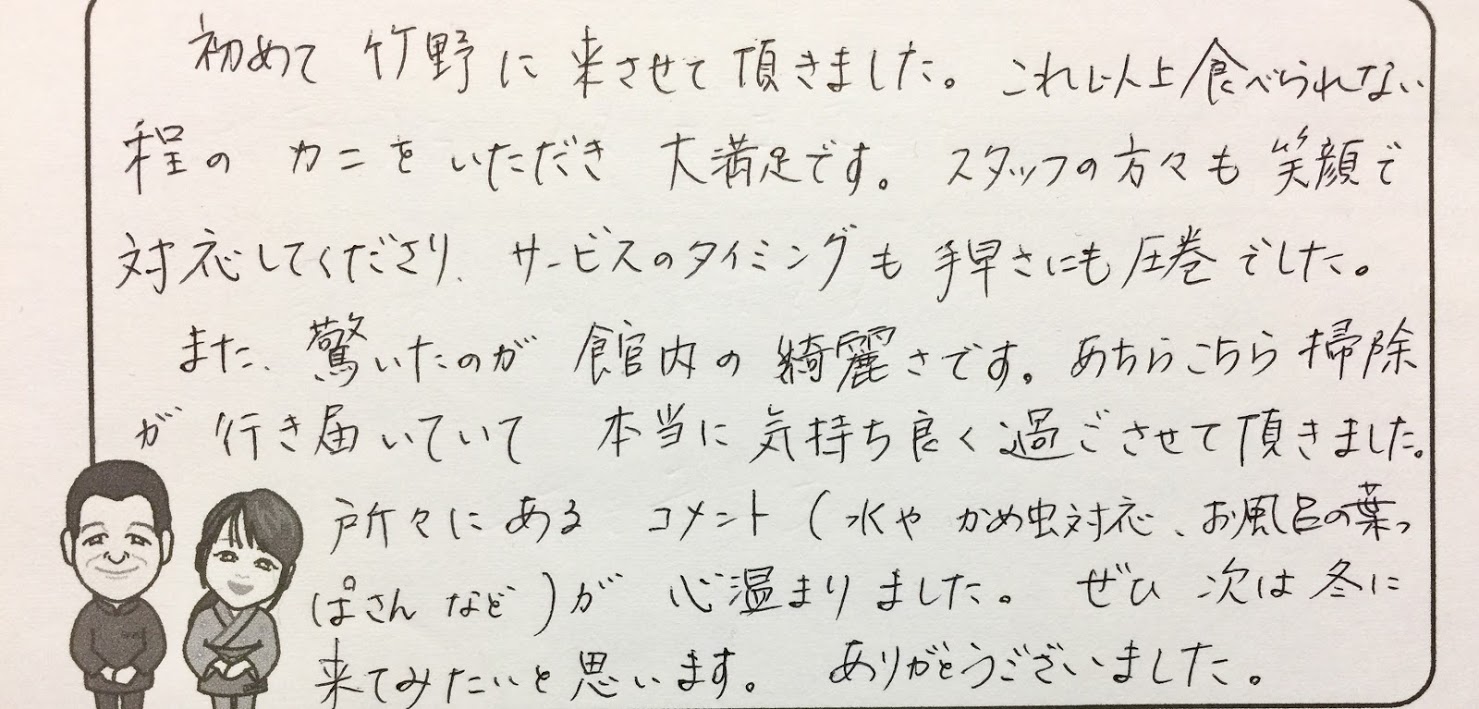 初めて 竹野に 来させて 頂きました。 これ以上食べられない
程の カニを いただき 大満足です。 スタッフの方々も 笑顔で
対応してくださり、サービスのタイミングも 手早さにも 圧巻でした。
また、驚いたのが 館内の 綺麗さです。あちらこちら 掃除
が 行き届いていて 本当に 気持ち良く過ごさせて頂きました。
所々に ある コメント (水や かめ虫対応、お風呂の葉っ
ぱさん など)が 心温まりました。 ぜひ 次は 冬に
来てみたいと 思います。 ありがとうございました。